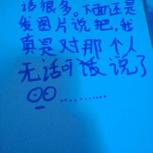 话很多。下面还是
发图片说把,我
真是对那个人
无话可饭说了
..........